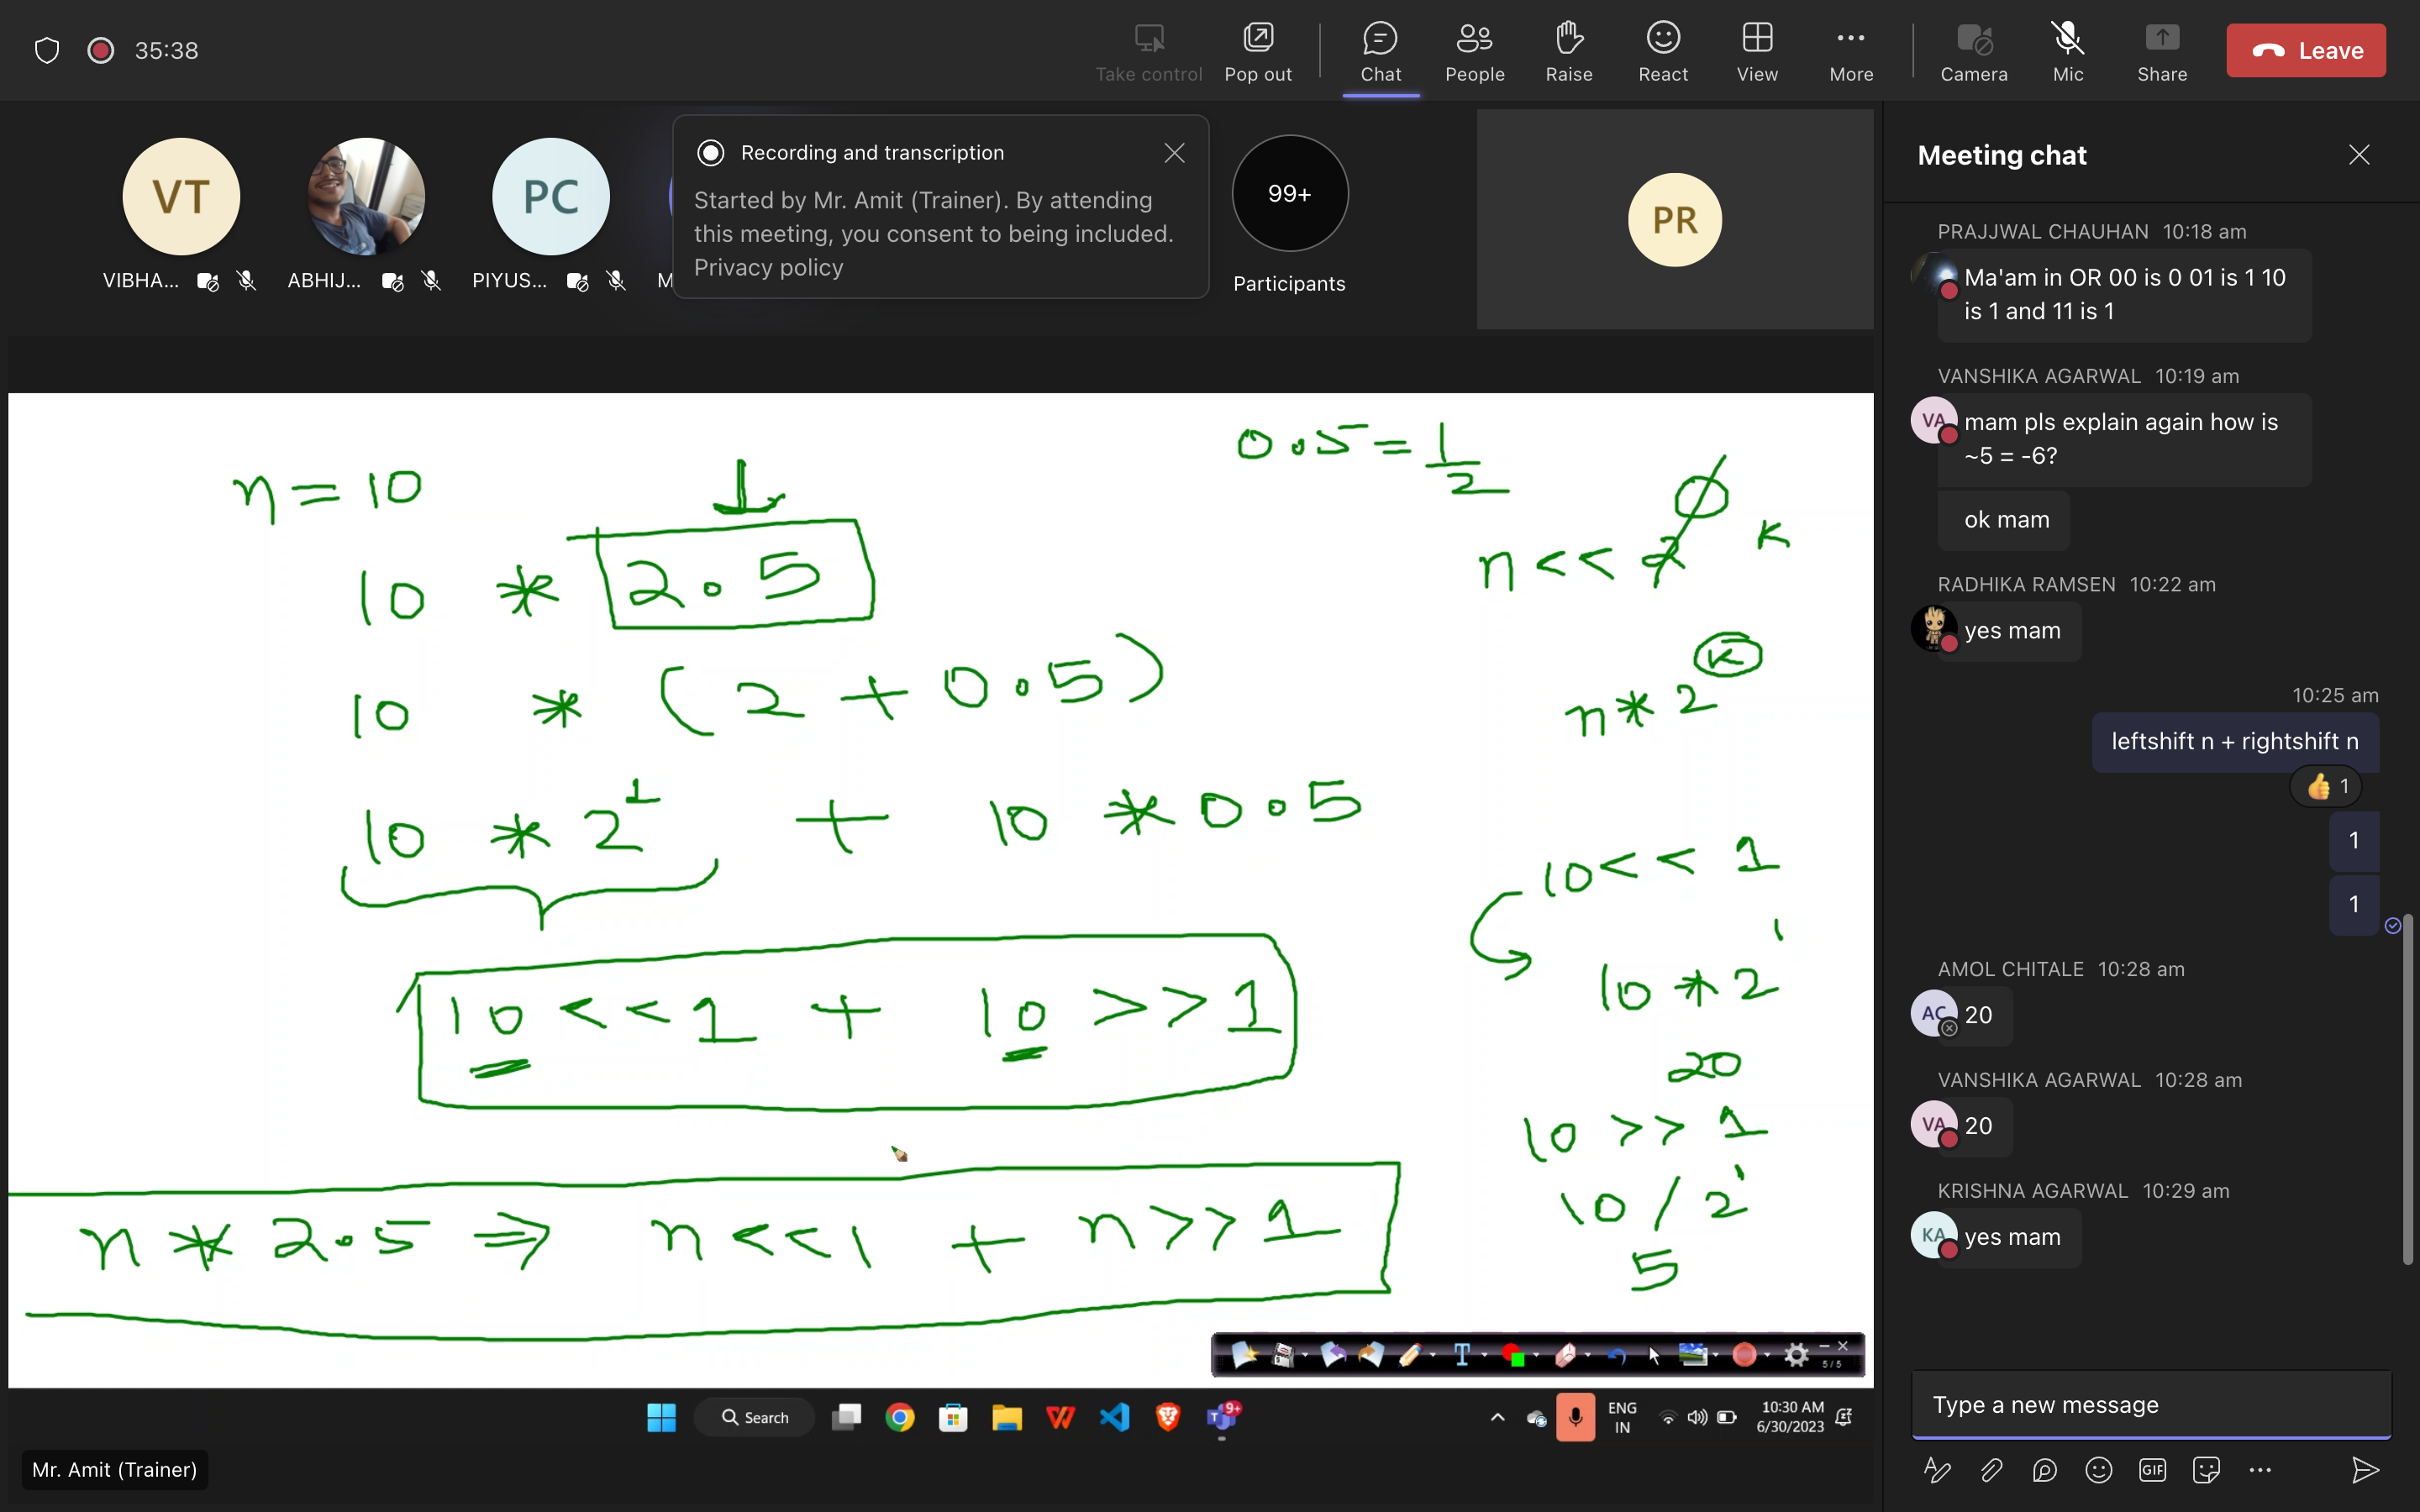 35:38
Take control
Pop out
Chat
People
Raise
React
View
More
Camera
Mic
Share
Leave
VT
VIBHA...
ABHIJ...
PC
PIYUS...
M
Recording and transcription
Started by Mr. Amit (Trainer). By attending
this meeting, you consent to being included.
Privacy policy
99+
Participants
PR
n = 10
10 * 2.5
10 * (2 + 0.5)
10 * 2¹ + 10 * 0.5
10 << 1 + 10 >> 1
n * 2.5 ⇒ n << 1 + n >> 1
0.5 = 1/2
n << 2 k
n * 2^k
10 << 1
10 * 2¹
20
10 >> 1
10 / 2¹
5
5/5
Search
9+
ENG
IN
10:30 AM
6/30/2023
Mr. Amit (Trainer)
Meeting chat
PRAJJWAL CHAUHAN 10:18 am
Ma'am in OR 00 is 0 01 is 1 10
is 1 and 11 is 1
VANSHIKA AGARWAL 10:19 am
VA
mam pls explain again how is
~5 = -6?
ok mam
RADHIKA RAMSEN 10:22 am
yes mam
10:25 am
leftshift n + rightshift n
👍 1
1
1
AMOL CHITALE 10:28 am
AC
20
VANSHIKA AGARWAL 10:28 am
VA
20
KRISHNA AGARWAL 10:29 am
KA
yes mam
Type a new message
GIF